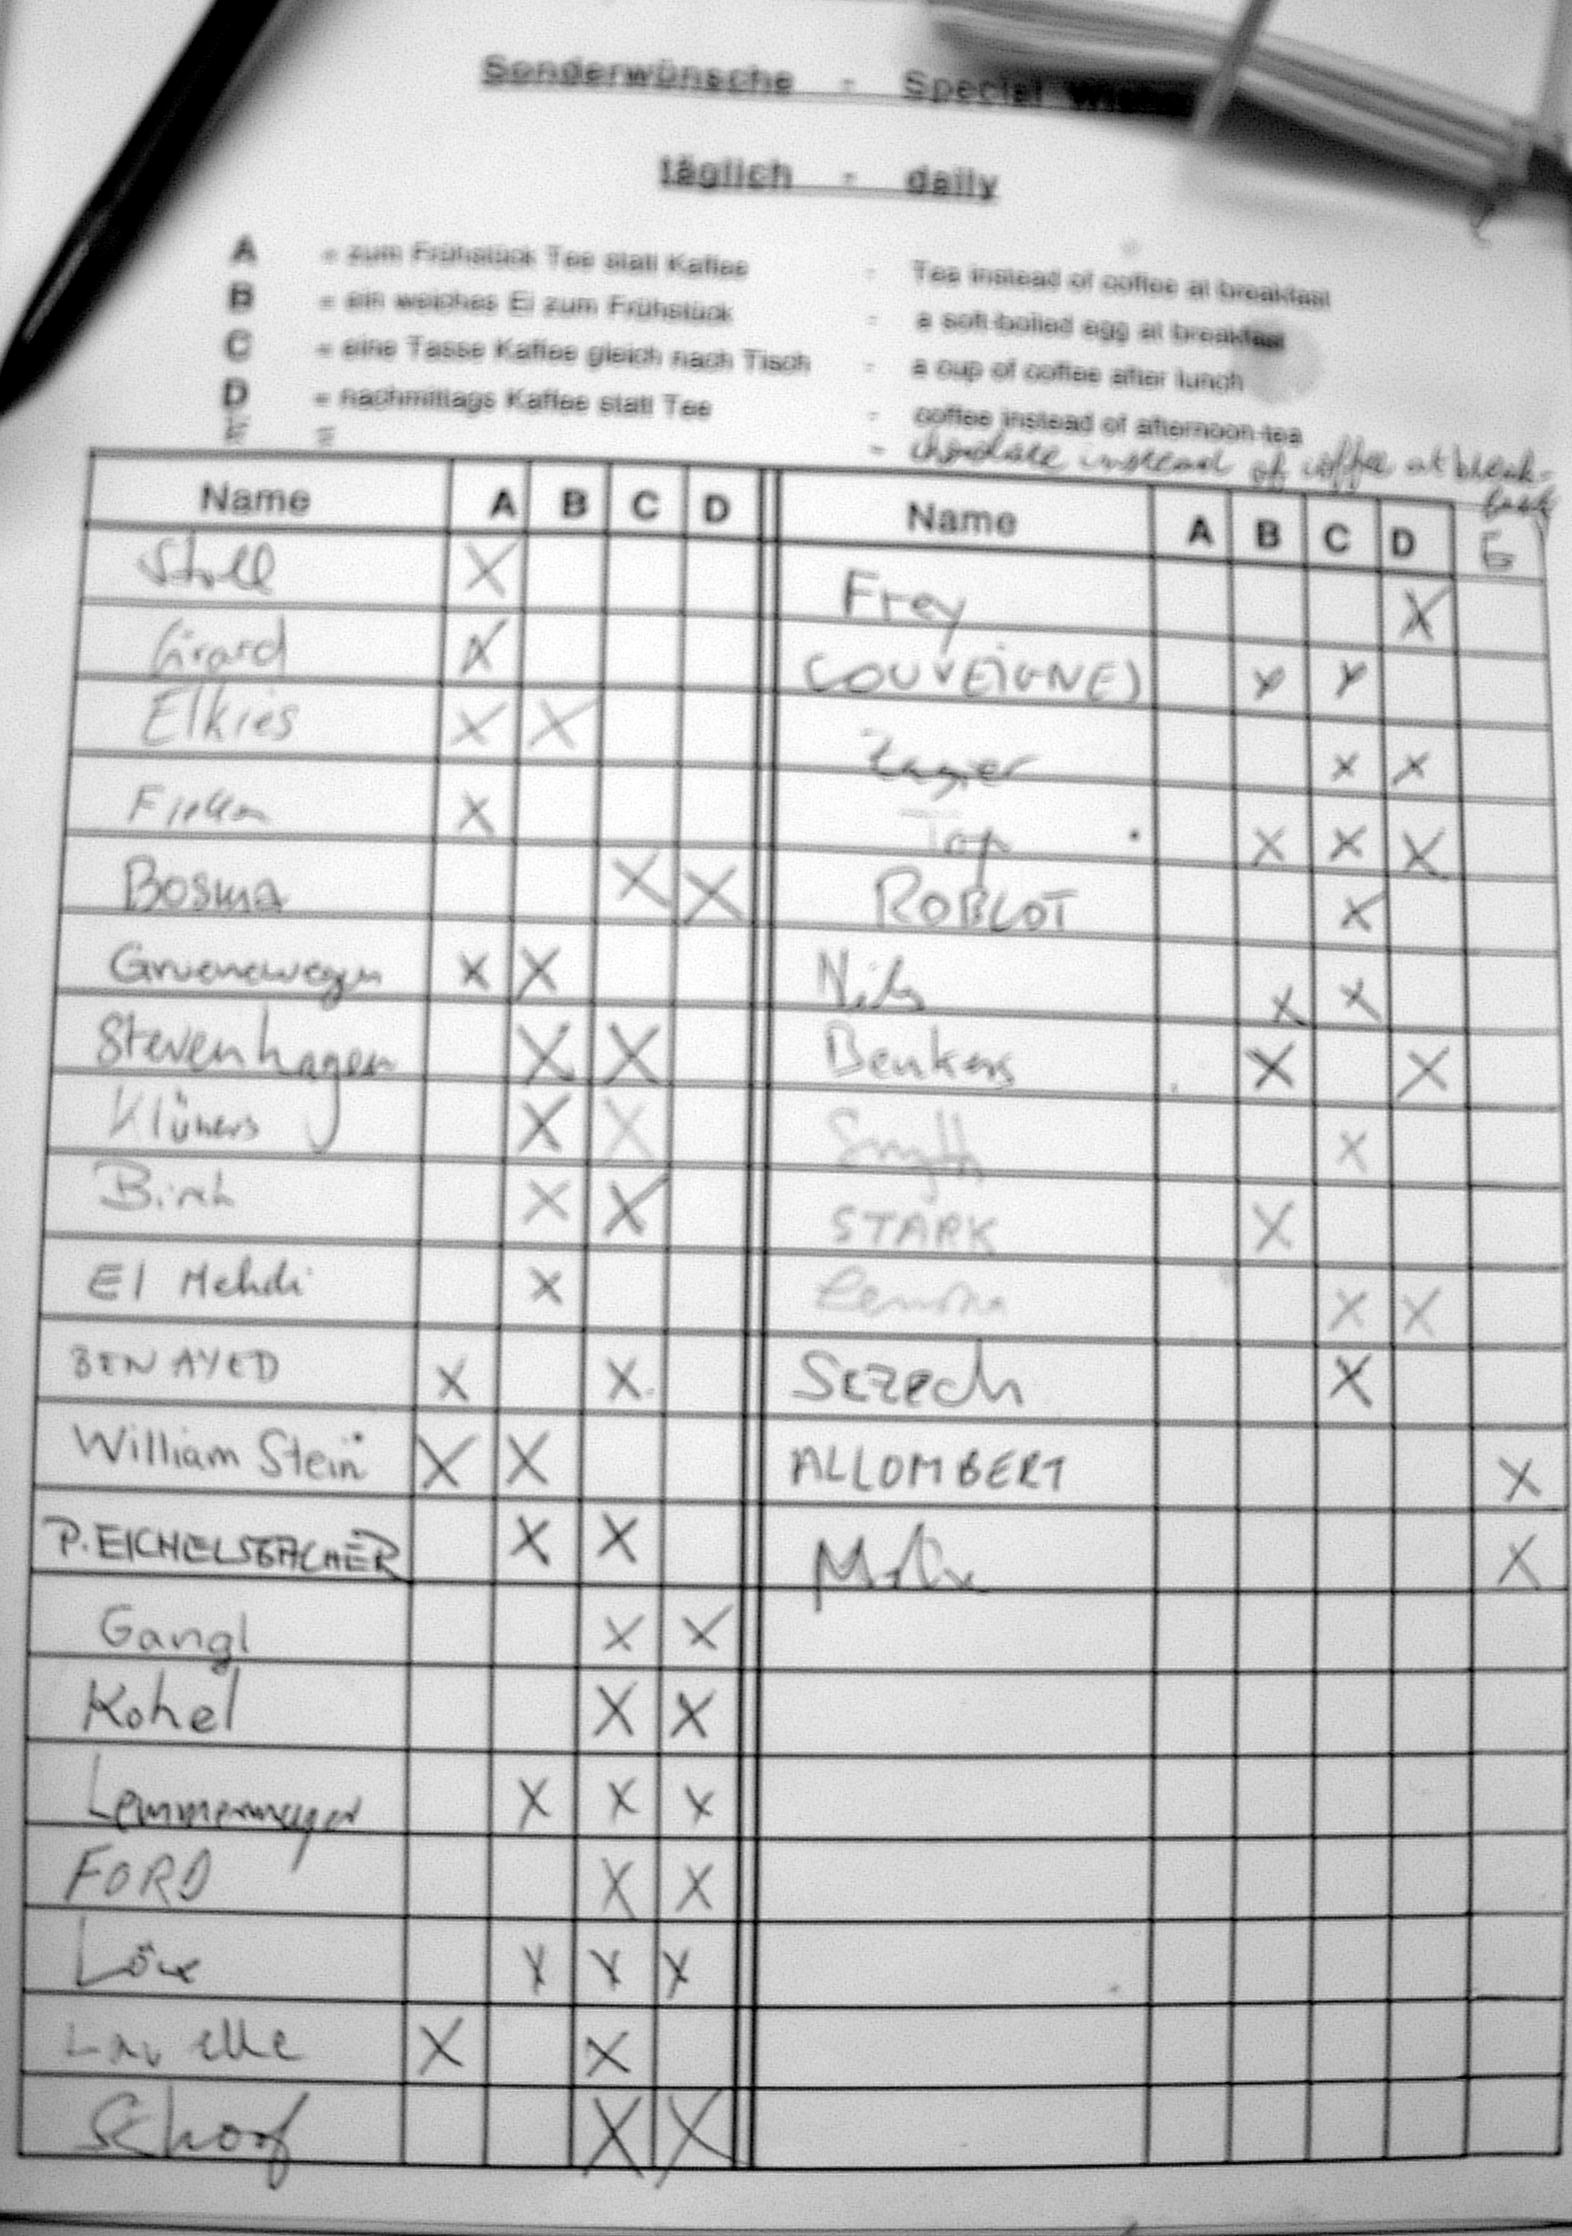 Sonderwünsche - Special
täglich - daily
A = zum Frühstück Tee statt Kaffee - Tea instead of coffee at breakfast
B = ein weiches Ei zum Frühstück - a soft-boiled egg at breakfast
C = eine Tasse Kaffee gleich nach Tisch - a cup of coffee after lunch
D = nachmittags Kaffee statt Tee - coffee instead of afternoon-tea
E = - chocolate instead of coffee at break-
fast
Name A B C D Name A B C D E
Stoll X Frey X
Girard X COUVEIGNES X X
Elkies X X Zagier X X
Fieker X Top X X X
Bosma X X ROBLOT X
Gruenewegen X X Nils X X
Stevenhagen X X Beukers X X
Klüners X X Smyth X
Birch X X STARK X
El Mehdi X X X
BEN AYED X X Sczech X
William Stein X X ALLOMBERT X
P. EICHELSBACHER X X X
Gangl X X
Kohel X X
Lemmermeyer X X X
FORD X X
X X X
X X
Schoof X X